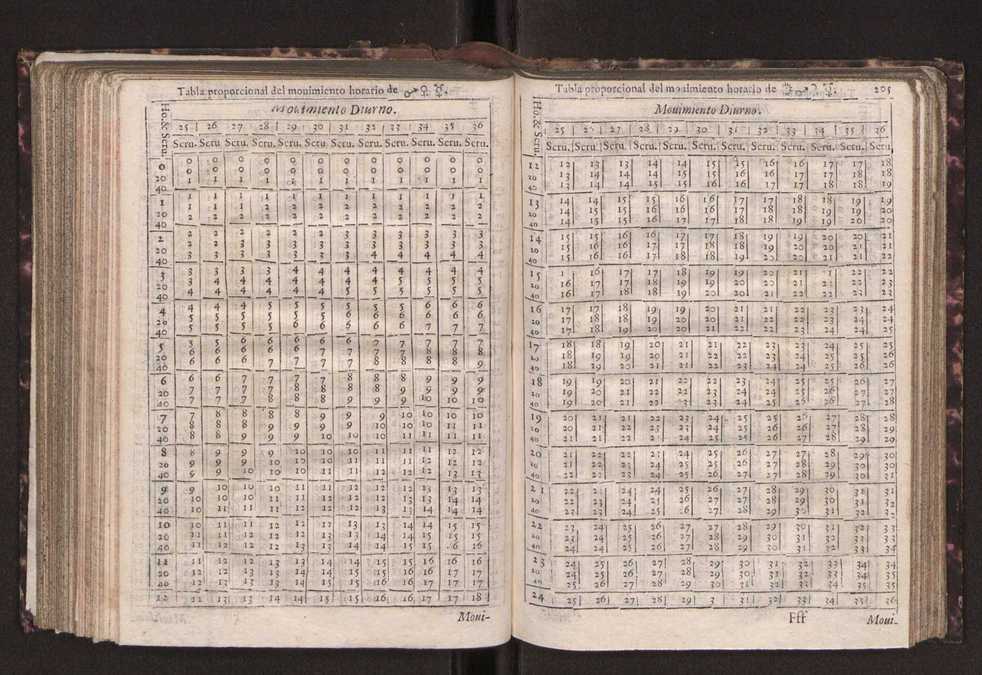 Tabla proporcional del mouimiento horario de ♂ ♀ ☿.
Mouimiento Diurno.
Ho. & Scru.
25 26 27 28 29 30 31 32 33 34 35 36
Scru. Scru. Scru. Scru. Scru. Scru. Scru. Scru. Scru. Scru. Scru. Scru.
0 0 0 0 0 0 0 0 0 0 0 0 0
20 0 0 0 0 0 0 0 0 0 0 0 0
40 1 1 1 1 1 1 1 1 1 1 1 1
1 1 1 1 1 1 1 1 1 1 1 1 1
20 1 1 1 2 2 2 2 2 2 2 2 2
40 2 2 2 2 2 2 2 2 2 2 2 2
2 2 2 2 2 2 2 3 3 3 3 3 3
20 2 2 3 3 3 3 3 3 3 3 3 3
40 3 3 3 3 3 3 3 4 4 4 4 4
3 3 3 3 4 4 4 4 4 4 4 4 4
20 3 4 4 4 4 4 4 4 5 5 5 5
40 4 4 4 4 4 5 5 5 5 5 5 5
4 4 4 5 5 5 5 5 5 5 6 6 6
20 5 5 5 5 5 5 6 6 6 6 6 6
40 5 5 5 5 6 6 6 6 6 7 7 7
5 5 5 6 6 6 6 6 7 7 7 7 7
20 6 6 6 6 6 7 7 7 7 8 8 8
40 6 6 6 7 7 7 7 8 8 8 8 9
6 6 6 7 7 7 7 8 8 8 8 9 9
20 7 7 7 7 8 8 8 8 9 9 9 9
40 7 7 7 8 8 8 9 9 9 9 10 10
7 7 8 8 8 8 9 9 9 10 10 10 10
20 8 8 8 9 9 9 9 10 10 10 11 11
40 8 8 9 9 9 10 10 10 11 11 11 11
8 8 9 9 9 10 10 10 11 11 11 12 12
20 9 9 9 10 10 10 11 11 11 12 12 12
40 9 9 10 10 10 11 11 12 12 12 13 13
9 9 10 10 10 11 11 12 12 12 13 13 13
20 10 10 10 11 11 12 12 12 13 13 14 14
40 10 10 11 11 12 12 12 13 13 14 14 14
10 10 11 11 12 12 12 13 13 14 14 15 15
20 11 11 12 12 12 13 13 14 14 15 15 15
40 11 12 12 12 13 13 14 14 15 15 6 16
11 11 12 12 13 13 14 14 15 15 16 16 16
20 12 12 13 13 14 14 15 15 15 16 17 17
40 12 13 13 13 14 15 15 16 16 17 17 17
12 12 13 13 14 14 15 15 16 16 17 17 18
Moui-
Tabla proporcional del mouimiento horario de ♂ ☿.
205
Mouimiento Diurno.
Ho. & Scru.
25 26 27 28 29 30 31 32 33 34 35 36
Scru. Scru. Scru. Scru. Scru. Scru. Scru. Scru. Scru. Scru. Scru. Scru.
12 12 13 13 14 14 15 15 16 16 17 17 18
20 13 13 14 14 15 15 16 16 17 17 18 18
40 13 14 14 14 15 16 16 17 17 18 18 19
13 14 14 15 15 16 16 17 17 18 18 19 19
20 14 14 15 15 16 16 17 18 18 19 19 20
40 14 15 15 16 16 17 17 18 18 19 20 20
14 15 15 16 16 17 17 18 19 19 20 20 21
20 15 16 16 17 17 18 18 19 20 20 21 21
40 15 16 16 17 18 18 19 20 20 21 21 22
15 1 16 17 17 18 19 19 20 21 1 22 22
20 16 17 17 18 19 19 20 20 21 21 22 23
40 16 17 18 18 19 20 20 21 22 22 23 23
16 17 17 18 19 19 20 21 21 22 23 23 24
20 17 18 18 19 20 20 21 22 22 23 24 24
40 17 18 19 20 20 21 21 22 23 24 24 25
17 18 18 19 20 21 21 22 23 23 24 25 25
20 18 19 19 20 21 21 22 23 24 25 25 26
40 18 19 20 21 21 22 23 24 24 25 26 26
18 19 19 20 21 22 22 23 24 25 25 26 27
20 19 20 21 21 22 23 24 24 25 26 27 27
40 19 20 21 22 23 23 24 25 26 26 27 28
19 20 21 21 22 23 24 25 25 26 27 28 28
20 20 21 22 22 23 24 25 26 26 27 28 29
40 21 21 22 23 24 25 25 26 27 28 29 29
20 21 22 22 23 24 25 26 27 27 28 29 30
20 21 22 23 24 25 25 26 27 28 29 30 30
40 21 22 23 24 25 26 27 27 28 29 30 31
21 22 23 24 24 25 26 27 28 29 30 31 31
20 22 23 24 25 26 27 27 28 29 30 31 32
40 23 23 24 25 26 27 28 29 30 31 32 32
22 23 24 25 26 27 27 28 29 30 31 32 33
20 23 24 25 26 27 28 29 30 31 32 33 33
40 24 24 25 26 27 28 29 30 31 32 33 34
23 24 25 26 27 28 29 30 31 32 33 34 34
20 24 25 26 27 28 29 30 31 32 33 34 35
40 25 26 27 28 29 30 31 32 33 34 35 35
24 25 26 27 28 29 3 31 32 33 34 35 36
Fff
Moui.